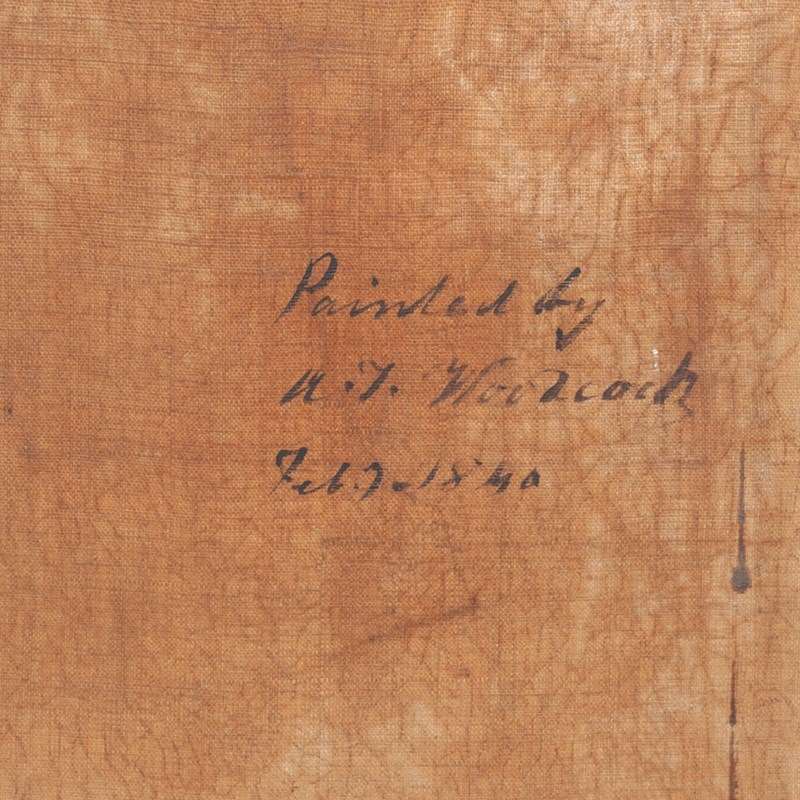 Painted by
A. F. Woodcock
Feb. 7. 1840